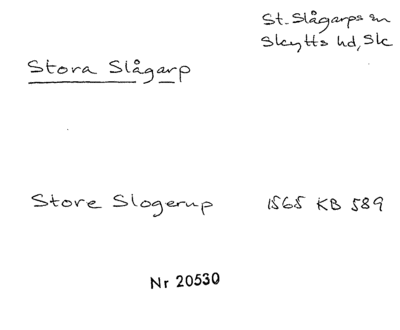 St. Slågarps sn
Skytts hd, Sk
Stora Slågarp
Store Slogerup 1565 KB 589
Nr 20530